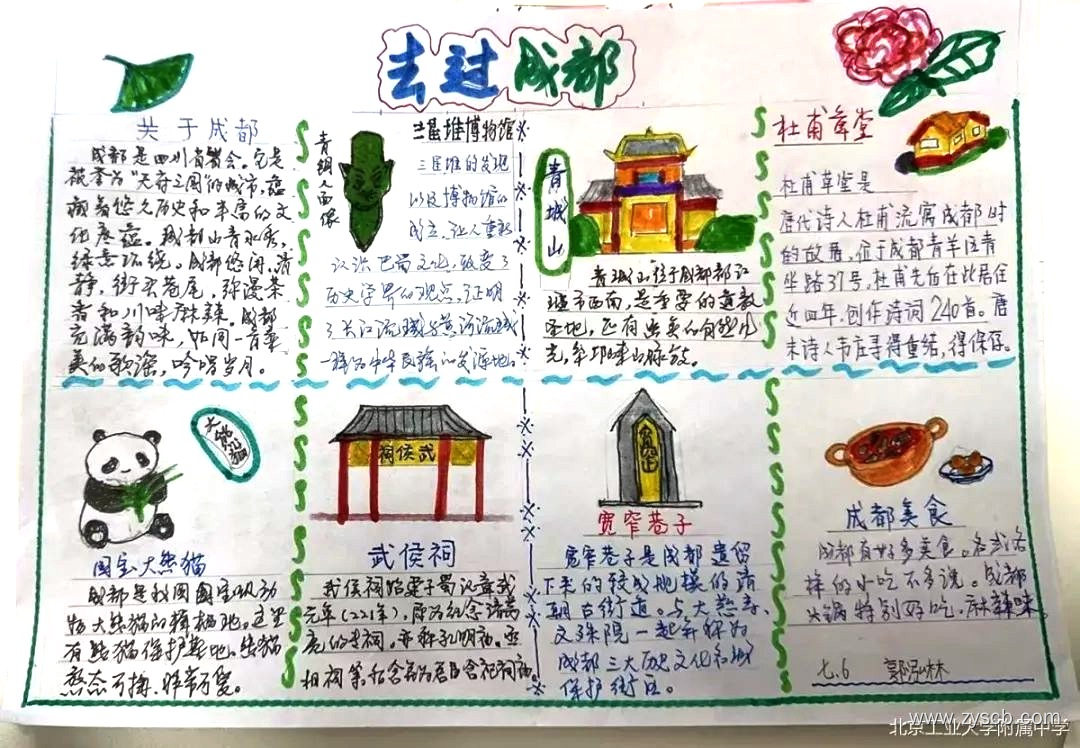 去过成都
关于成都
成都是四川省省会。它是
被誉为“天府之国”的城市,蕴
藏着悠久历史和丰富的文
化底蕴。成都山青水秀,
绿意环绕。成都悠闲,清
静,街头巷尾,弥漫茶
香和川味麻辣。成都
充满韵味,如同一首柔
美的歌谣,吟唱岁月。
青铜人面像
三星堆博物馆
三星堆的发现
以及博物馆的
成立,让人重新
认识巴蜀文化,改变了
历史学界的观点,证明
了长江流域与黄河流域
一样为中华民族的发源地。
青城山
青城山,位于成都都江
堰市西南,是重要的道教
圣地,还有优美的自然风
光,牟邛崃山脉
杜甫草堂
杜甫草堂是
唐代诗人杜甫流寓成都时
的故居,位于成都青羊区青
华路37号,杜甫先后在此居住
近四年,创作诗词240首。唐
末诗人韦庄寻得重结,得保存。
大熊猫
国宝大熊猫
成都是我国国宝级动
物大熊猫的栖息地。这里
有熊猫保护基地。熊猫
憨态可掬,非常可爱。
武侯祠
武侯祠
武侯祠始建于蜀汉章武
元年(221年),原为纪念诸葛
亮的专祠,亦称孔明庙。
相祠等,
宽窄巷子
宽窄巷子是成都遗留
下来的较成规模的清
朝古街道。与大慈寺、
文殊院一起并称为
成都三大历史文化名城
保护街区。
成都美食
成都有好多美食。各式各
样的小吃不多说。成都
火锅特别好吃,麻辣味
七.6 郭泓林
www.zyscb.com
北京工业大学附属中学